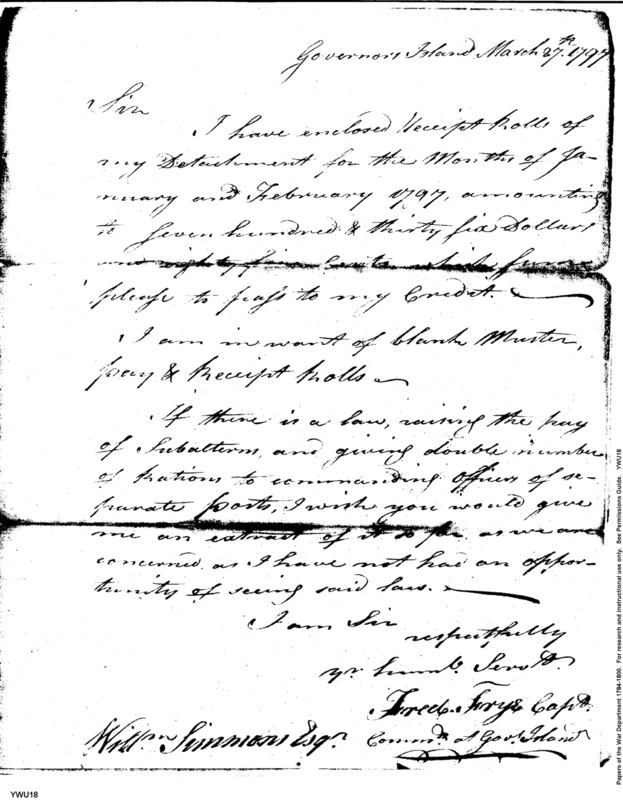 Governors Island March 27th. 1797
Sir
I have enclosed Receipt Rolls of
my Detachment for the Months of Ja-
nuary and February 1797, amounting
to Seven hundred & thirty six Dollars
and eighty five Cents which sum
please to pass to my Credit.
I am in want of blank Muster,
pay & Receipt Rolls
If there is a law, raising the pay
of Subalterns, and giving double number
of Rations to commanding officers of se-
parate posts, I wish you would give
me an extract of it so far as we are
concerned as I have not had an oppor-
tunity of seeing said law.
I am Sir
respectfully
yr. humbl. Servt.
Fredk. Frye Capt.
Commdt. at Govs. Island
Willm Simmons Esqr.
YWU18
Papers of the War Department 1784-1800. For research and instructional use only. See Permissions Guide. YWU18